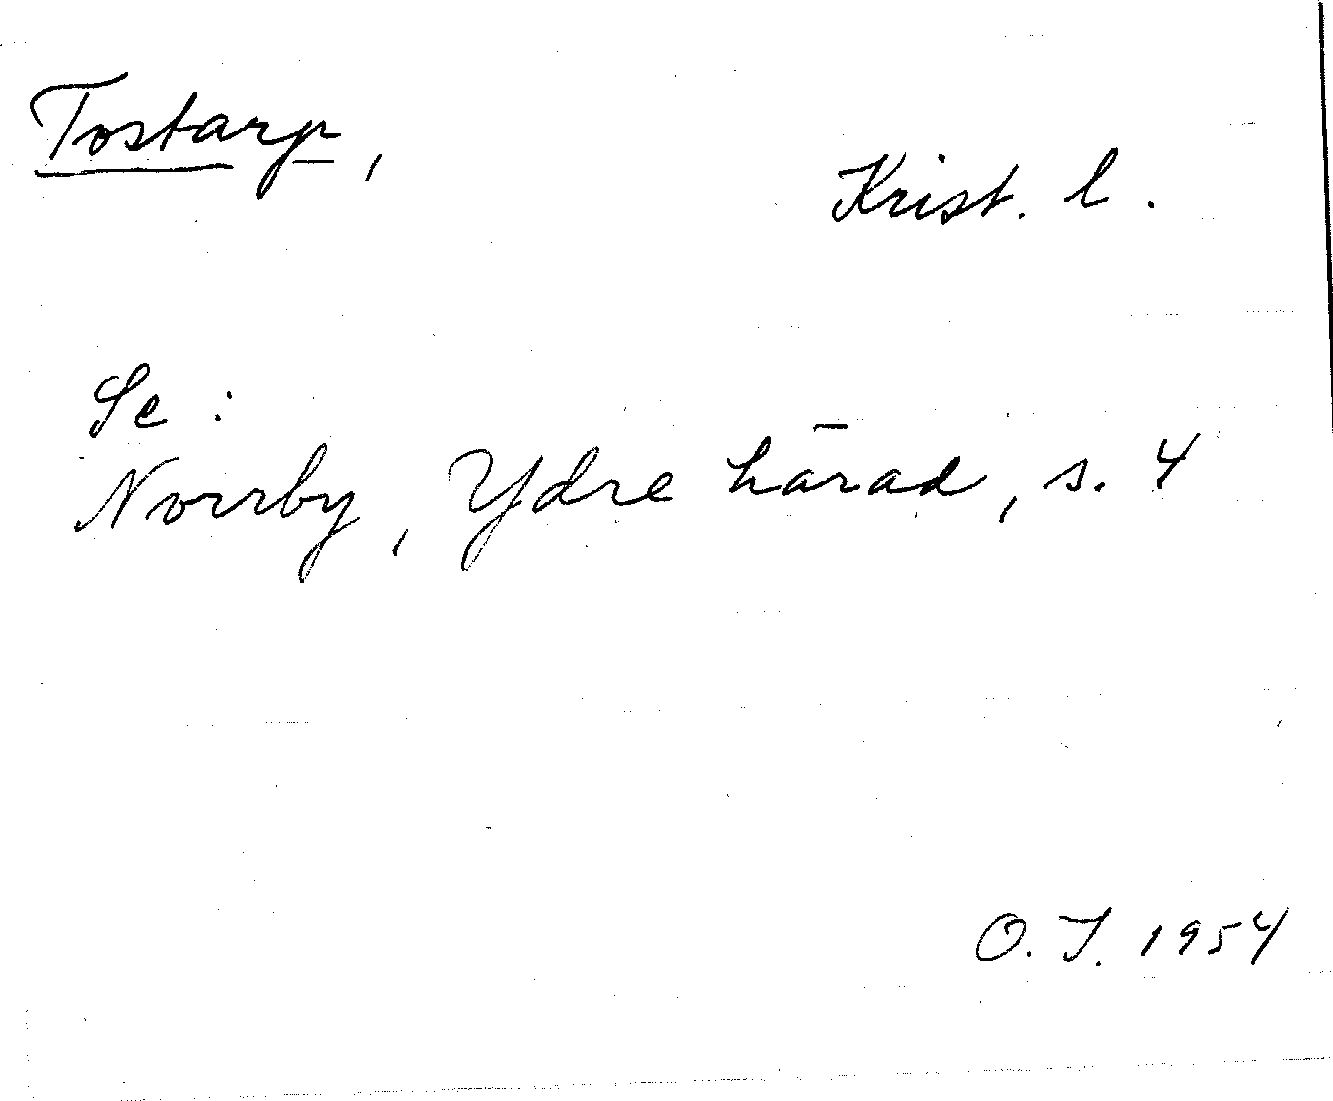 Tostarp,
Krist. l.
Se:
Norrby, Ydre härad, s. 4
O. J. 1954